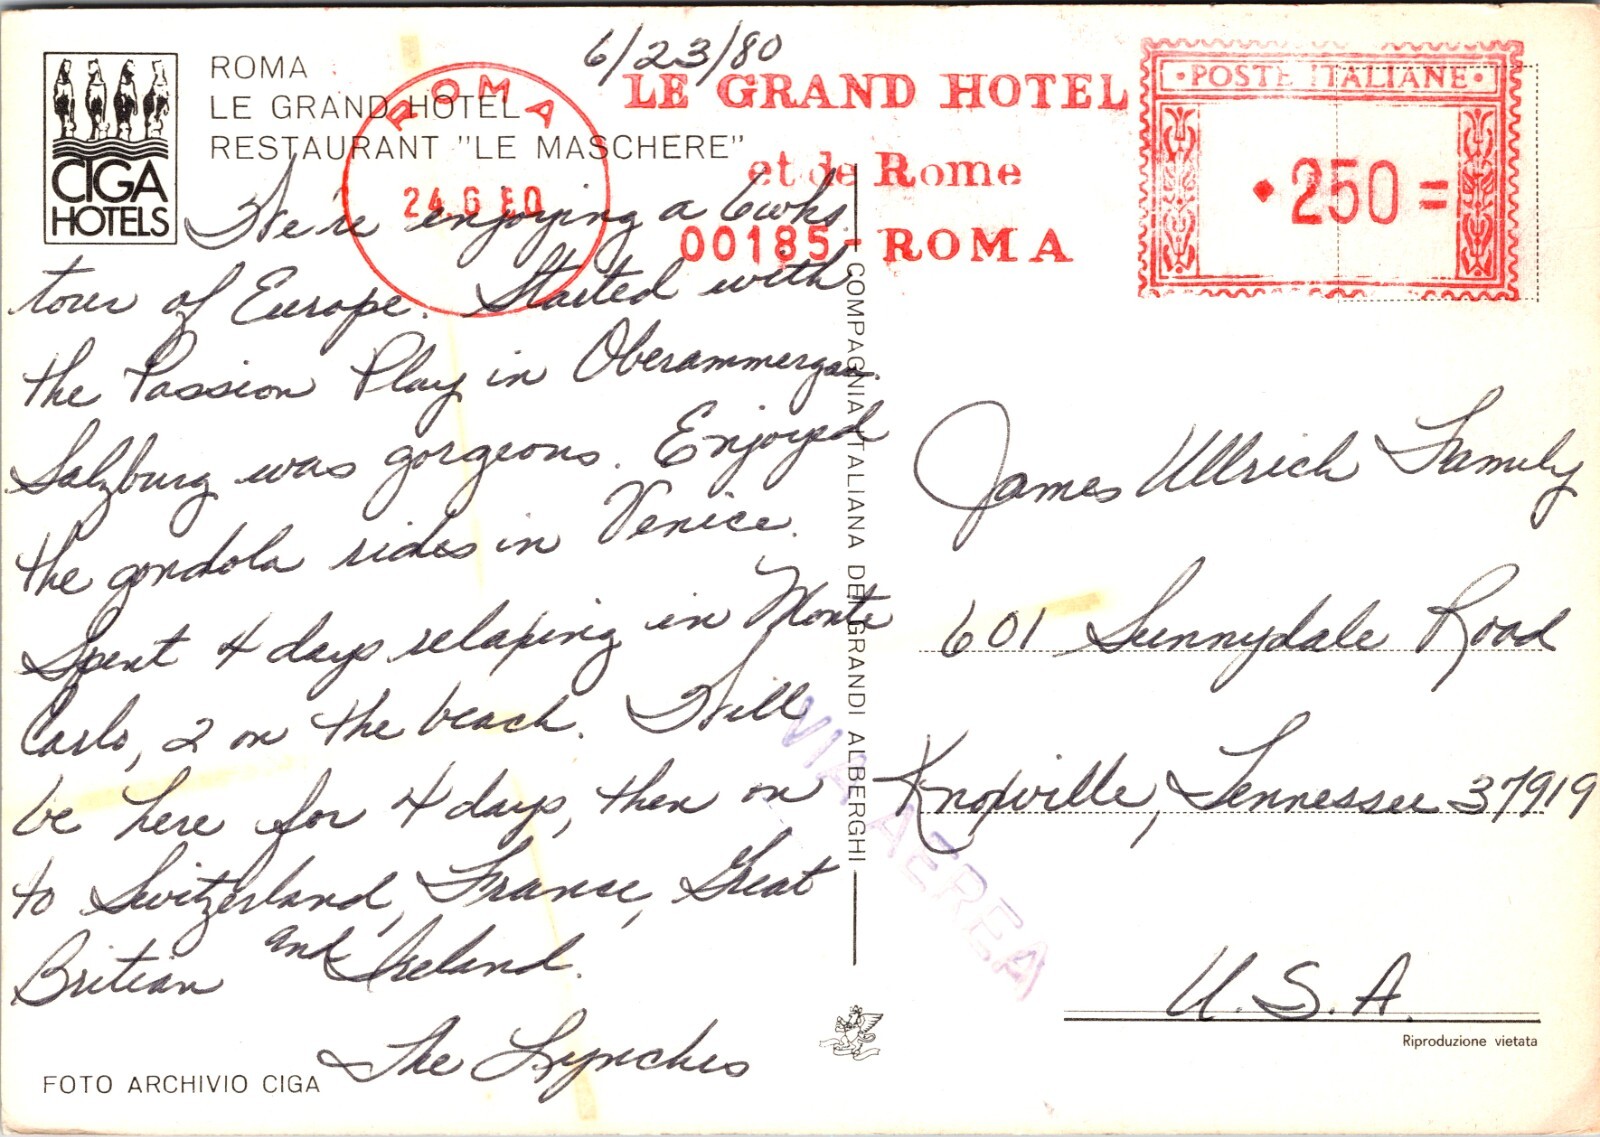 6/23/80
CIGA
HOTELS
ROMA
LE GRAND HOTEL
RESTAURANT "LE MASCHERE"
ROMA
24.6 80
LE GRAND HOTEL
et de Rome
00185-ROMA
·POSTE ITALIANE·
250=
We're enjoying a 6wks.
tour of Europe. Started with
the Passion Play in Oberammergau.
Salzburg was gorgeous. Enjoyed
the gondola rides in Venice.
Spent 4 days relaxing in Monte
Carlo, 2 on the beach. Will
be here for 4 days, then on
to Switzerland, France, Great
Britian and Ireland.
The Lynches
FOTO ARCHIVIO CIGA
COMPAGNIA ITALIANA DEI GRANDI ALBERGHI
VIA AEREA
James Ullrich Family
601 Sunnydale Road
Knoxville, Tennessee 37919
U.S.A.
Riproduzione vietata